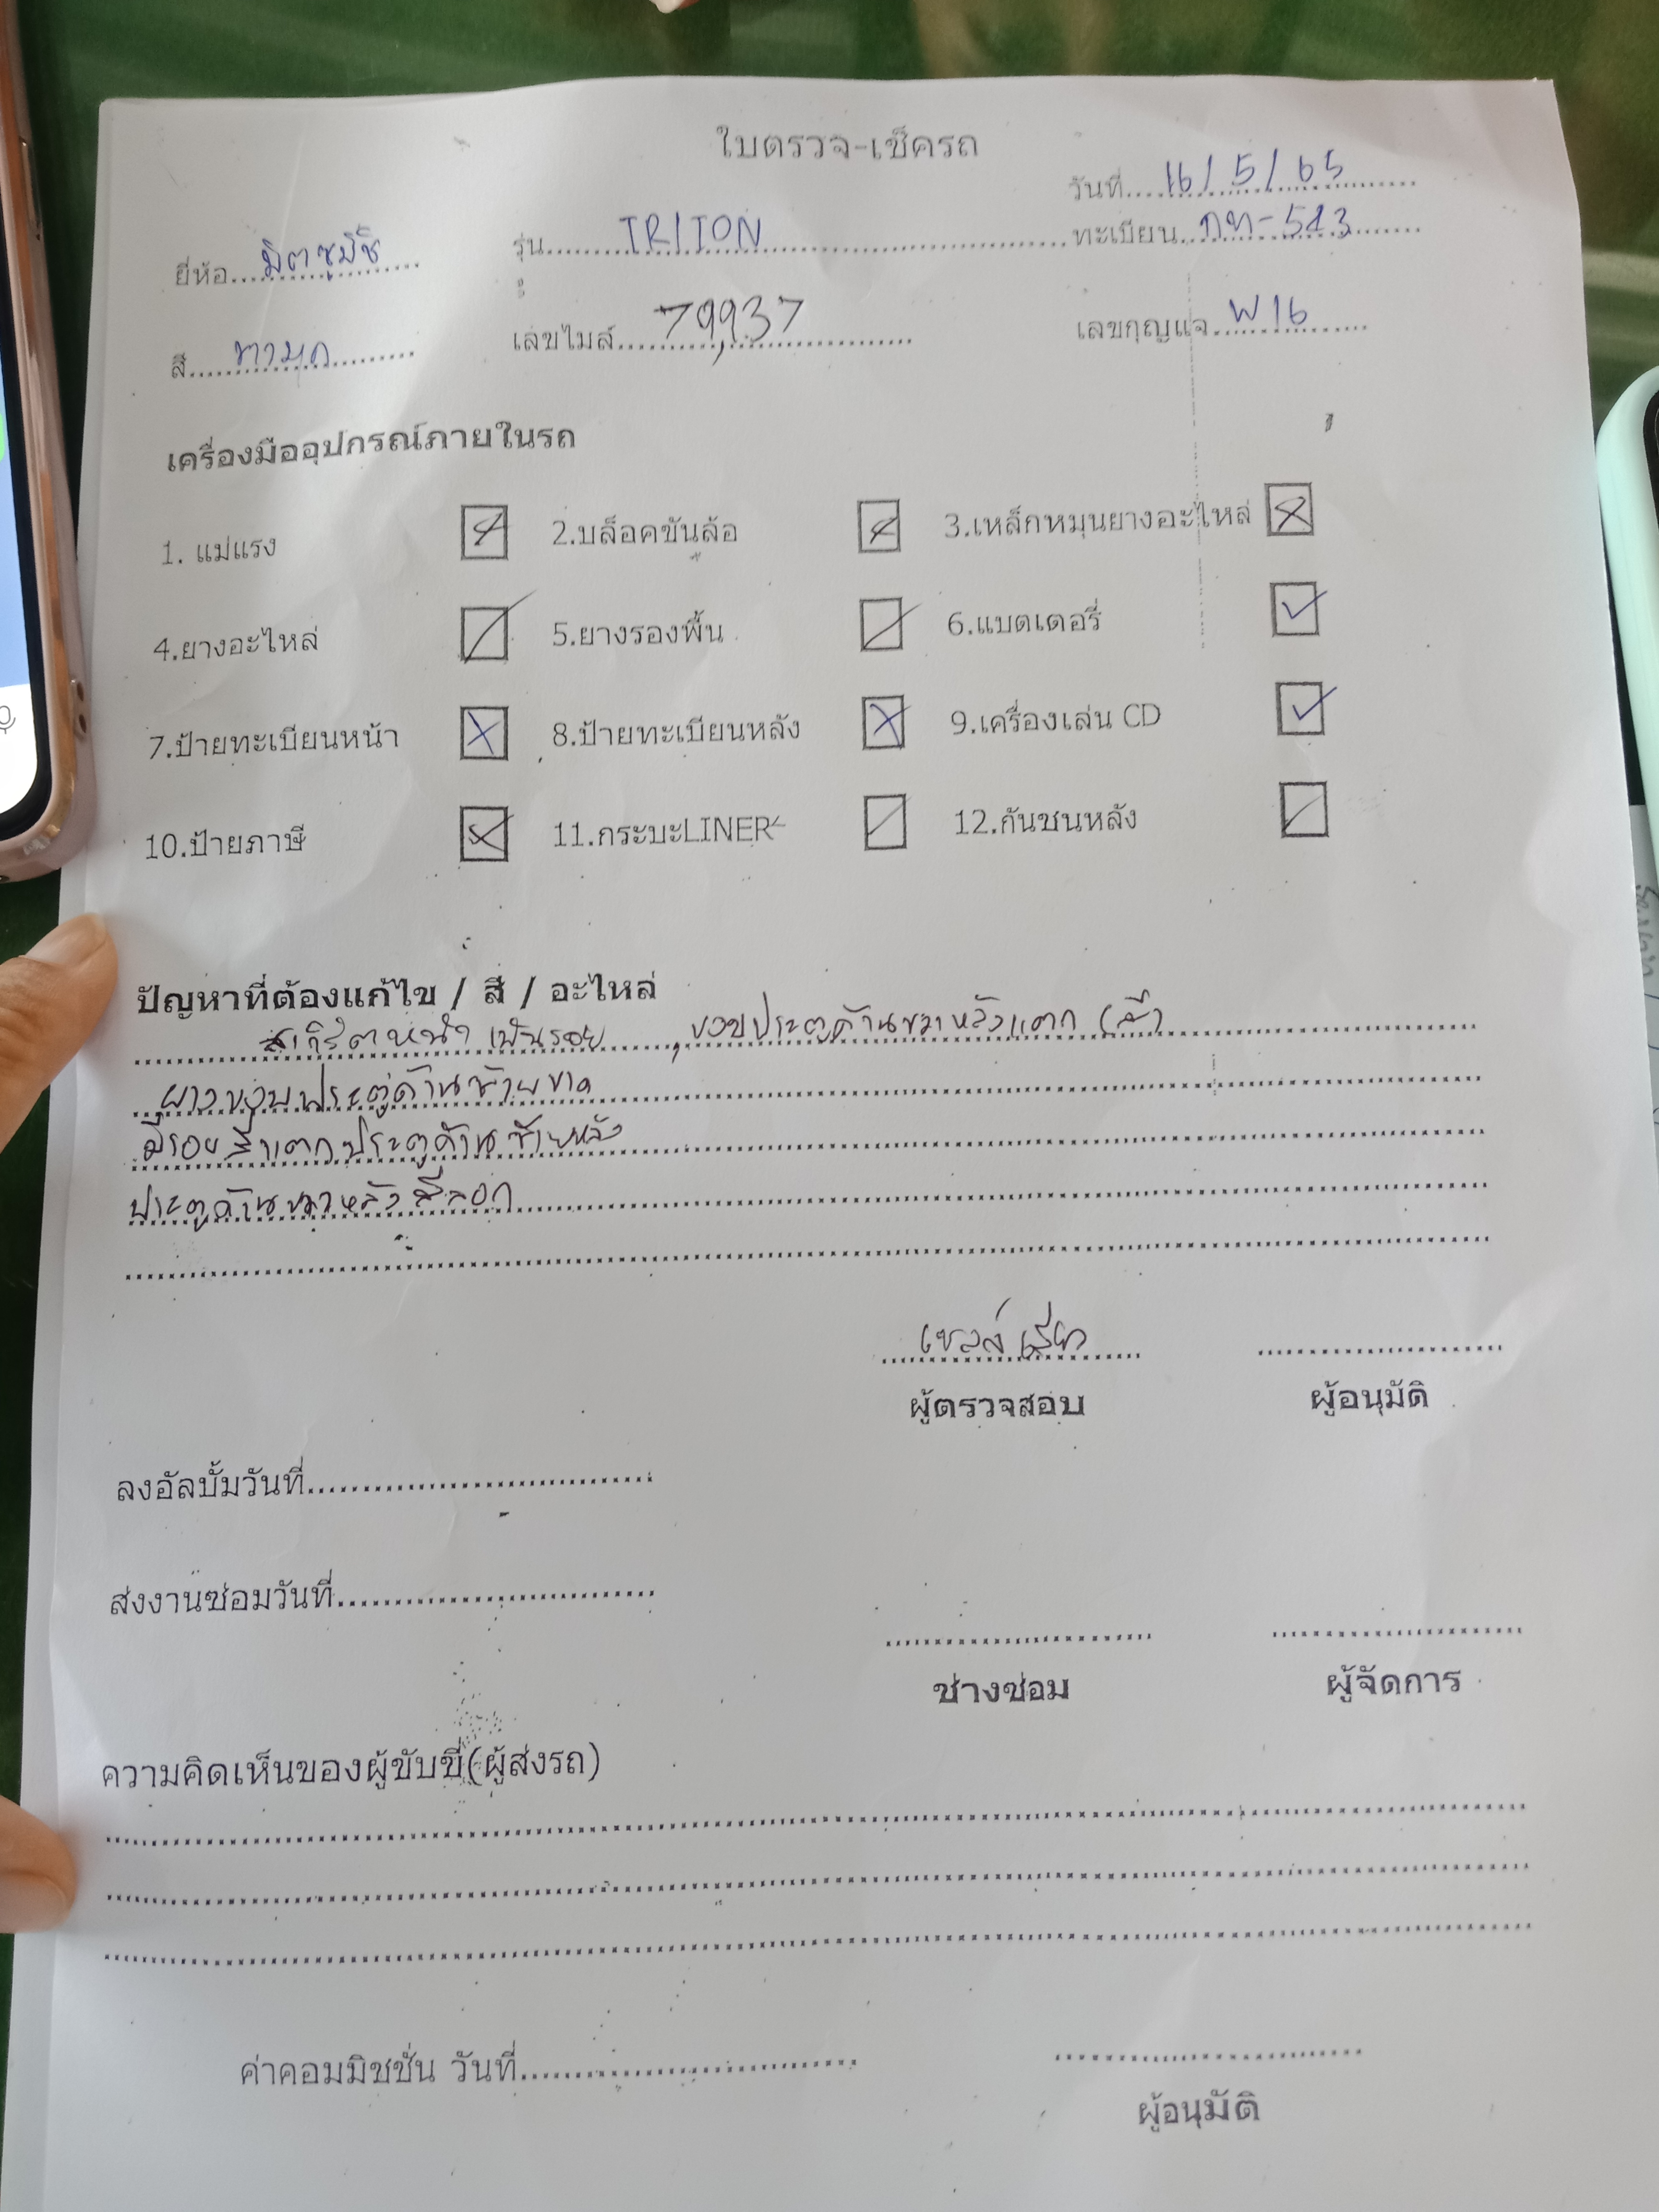 ใบตรวจ-เช็ครถ
วันที่ 16/5/65
ยี่ห้อ มิตซูบิชิ รุ่น TRITON ทะเบียน กท-513
สี ขาวมุก เลขไมล์ 79,937 เลขกุญแจ W16
เครื่องมืออุปกรณ์ภายในรถ
1. แม่แรง 2.บล็อคขันล้อ 3.เหล็กหมุนยางอะไหล่
4.ยางอะไหล่ 5.ยางรองพื้น 6.แบตเตอรี่
7.ป้ายทะเบียนหน้า 8.ป้ายทะเบียนหลัง 9.เครื่องเล่น CD
10.ป้ายภาษี 11.กระบะLINER 12.กันชนหลัง
ปัญหาที่ต้องแก้ไข / สี / อะไหล่
หน้า เป็นรอย , ขอบประตูด้านขวาหลังแตก (สี)
ยางขอบประตูด้านซ้ายขาด
มีรอยสีแตกประตูด้านซ้ายหลัง
ประตูด้านขวาหลังสีลอก
เซลล์
ผู้ตรวจสอบ ผู้อนุมัติ
ลงอัลบั้มวันที่
ส่งงานซ่อมวันที่
ช่างซ่อม ผู้จัดการ
ความคิดเห็นของผู้ขับขี่(ผู้ส่งรถ)
ค่าคอมมิชชั่น วันที่
ผู้อนุมัติ